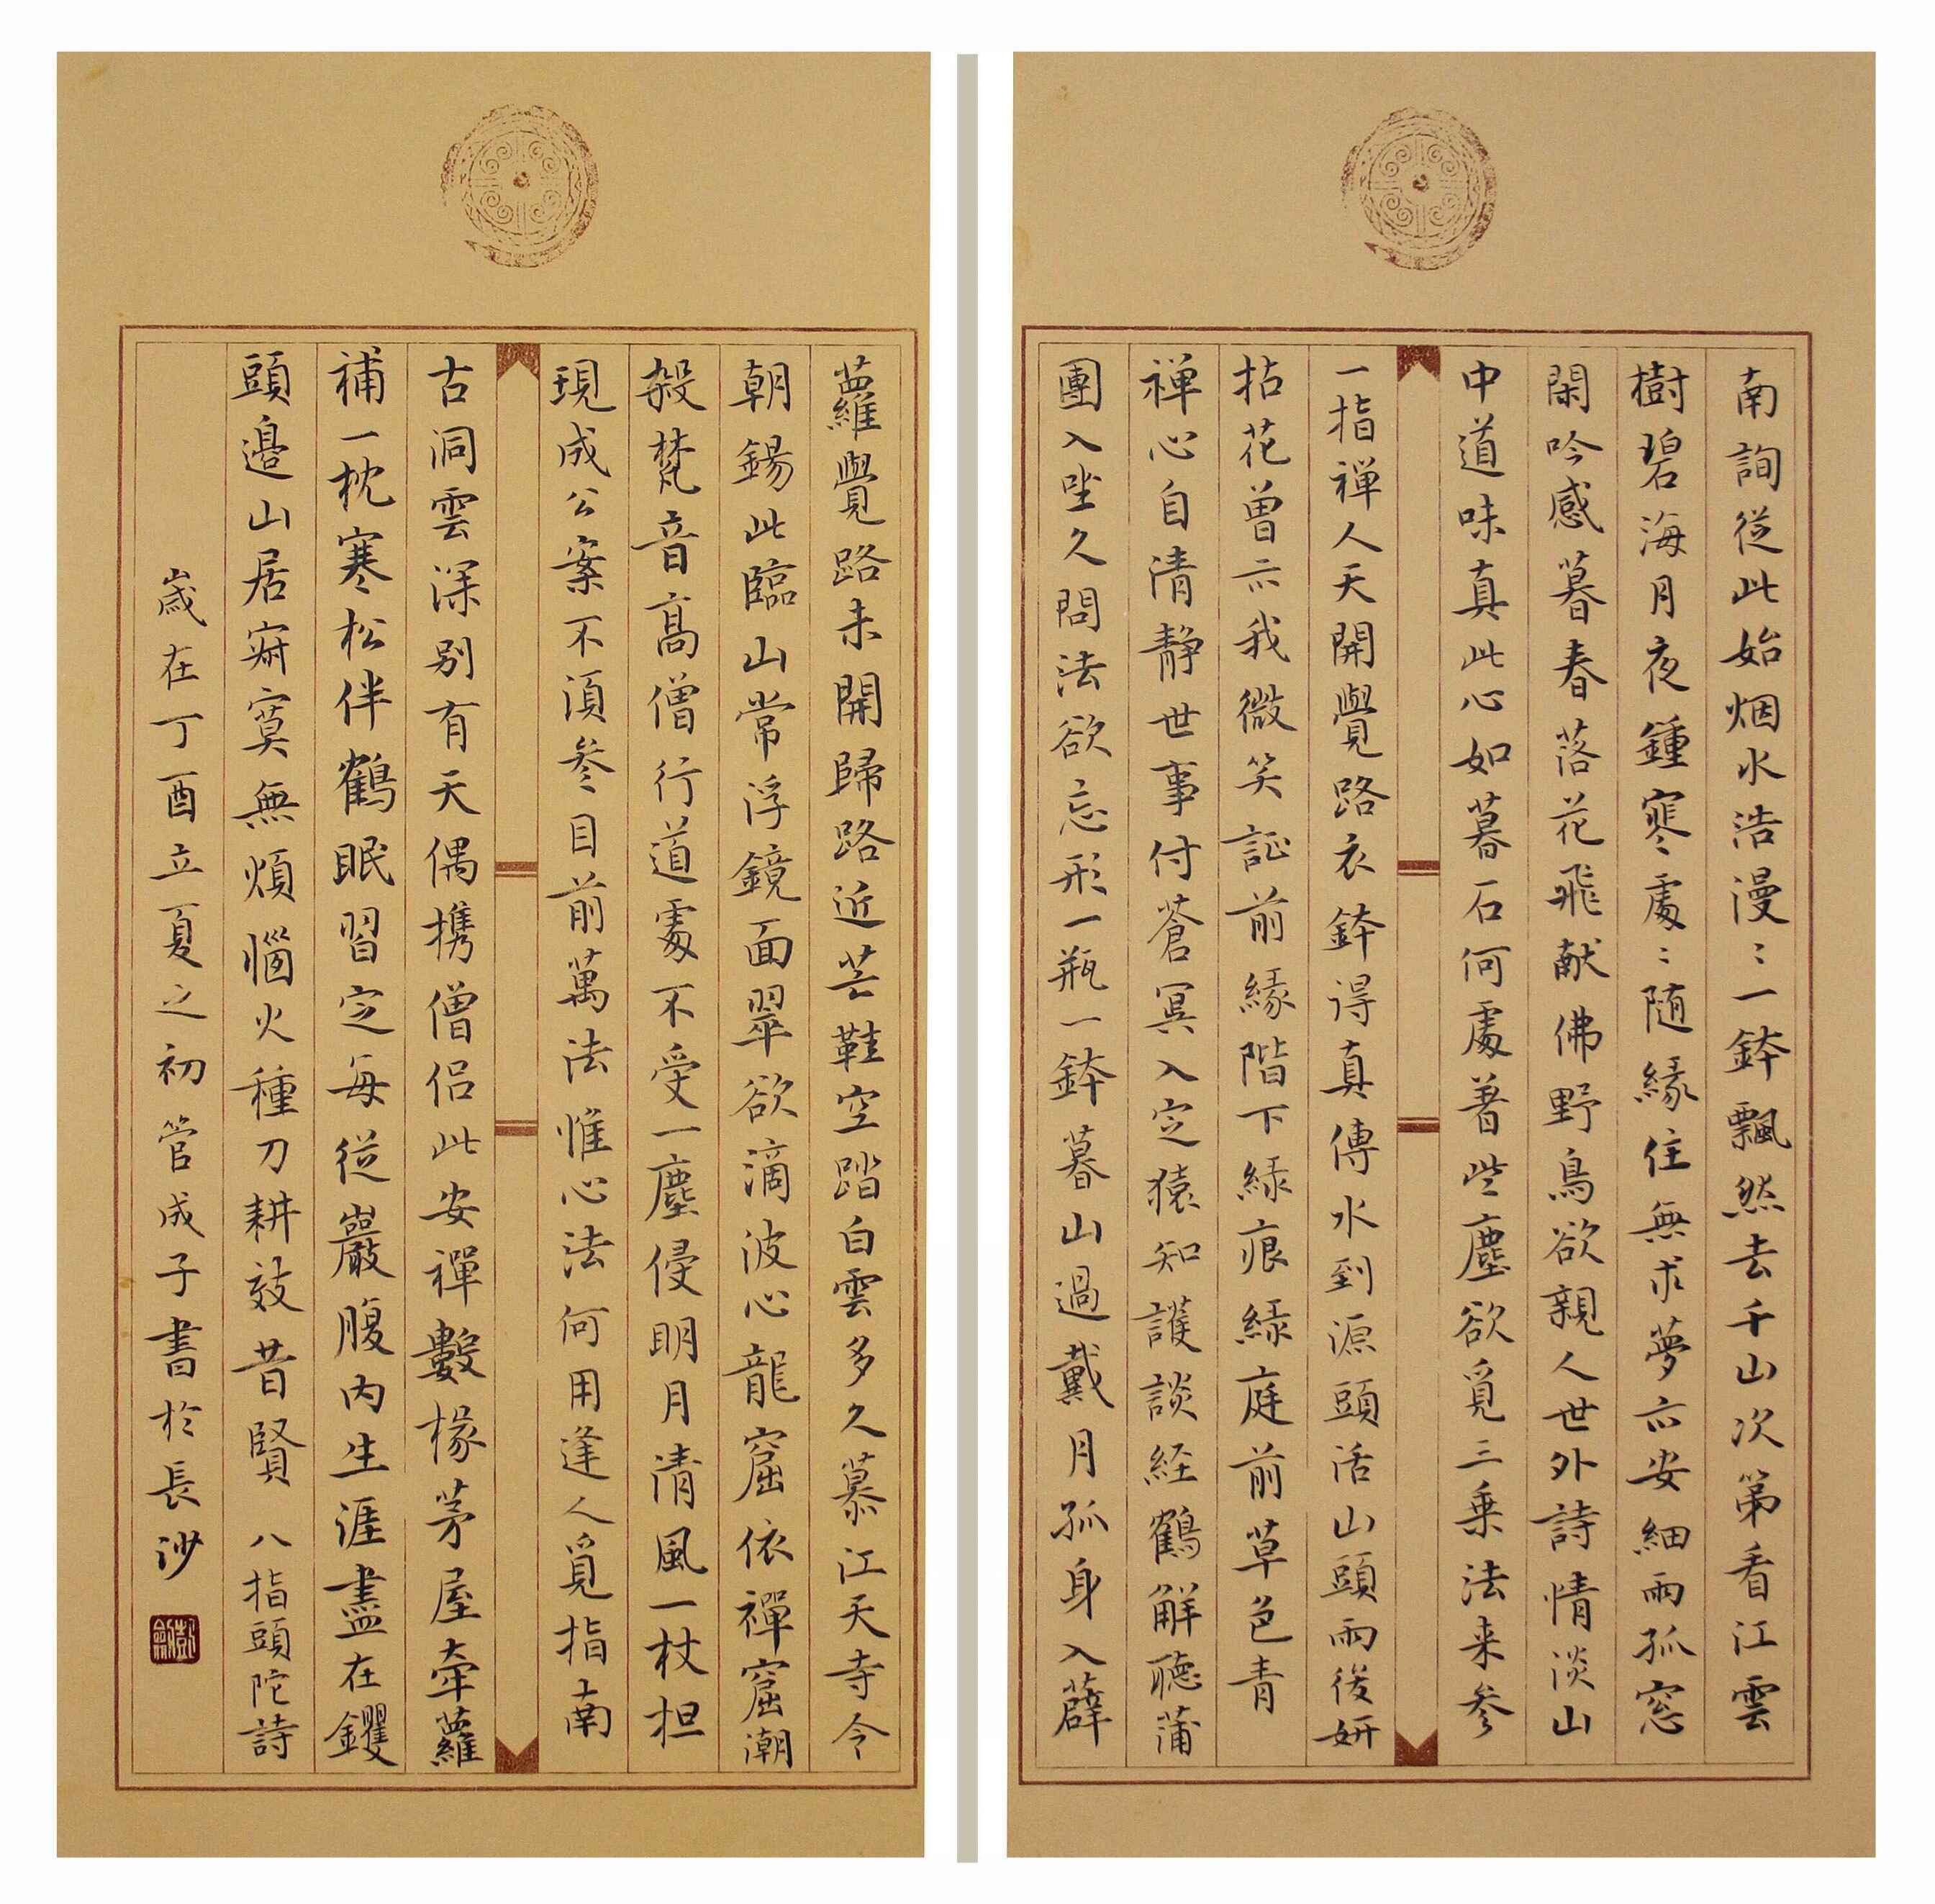 南詢從此始烟水浩漫〻一鉢飄然去千山次第看江雲
樹碧海月夜鍾寒處〻随緣住無求夢亦安細雨孤窓
閑吟感暮春落花飛献佛野鳥欲親人世外詩情淡山
中道味真此心如暮石何處著些塵欲覓三乗法来参
一指禅人天開覺路衣鉢得真傳水到源頭活山頭雨後妍
拈花曽示我微笑証前緣階下緑痕緑庭前草色青
禅心自清静世事付蒼冥入定猿知護談経鶴解聴蒲
團入坐久問法欲忘形一瓶一鉢暮山過戴月孤身入薜
蘿覺路未開歸路近芒鞋空踏白雲多久慕江天寺今
朝錫此臨山常浮鏡面翠欲滴波心龍窟依禪窟潮
殺梵音高僧行道處不受一塵侵明月清風一杖担
現成公案不須参目前萬法惟心法何用逢人覓指南
古洞雲深别有天偶携僧侣此安禪數椽茅屋牵蘿
補一枕寒松伴鶴眠習定每從巖腹内生涯盡在钁
頭邉山居寂寞無煩惱火種刀耕效昔賢 八指頭陀詩
歲在丁酉立夏之初管成子書於長沙